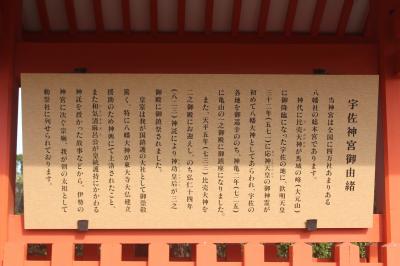 宇佐神宮御由緒
当神宮は全国に四万社あまりある
八幡社の総本宮であります。
神代に比売大神が馬城の峰(大元山)
に御降臨になった宇佐の地に、欽明天皇
三十二年(五七一)応神天皇の御神霊が
初めて八幡大神としてあらわれ、宇佐の
各地を御巡幸ののち、神亀二年(七二五)
に亀山の一之御殿に御鎮座になりました。
また、天平五年(七三三)比売大神を
二之御殿にお迎えし、のち弘仁十四年
(八二三)神託により神功皇后が三之
御殿に御鎮祭されました。
皇室は我が国鎮護の大社として御崇敬
篤く、特に八幡大神が東大寺大仏建立
援助のため神輿にて上洛されたこと、
また和気清麻呂公が皇統護持にかかわる
神託を授かった故事などから、伊勢の
神宮に次ぐ宗廟、我が朝の太祖として
勅祭社に列せられております。